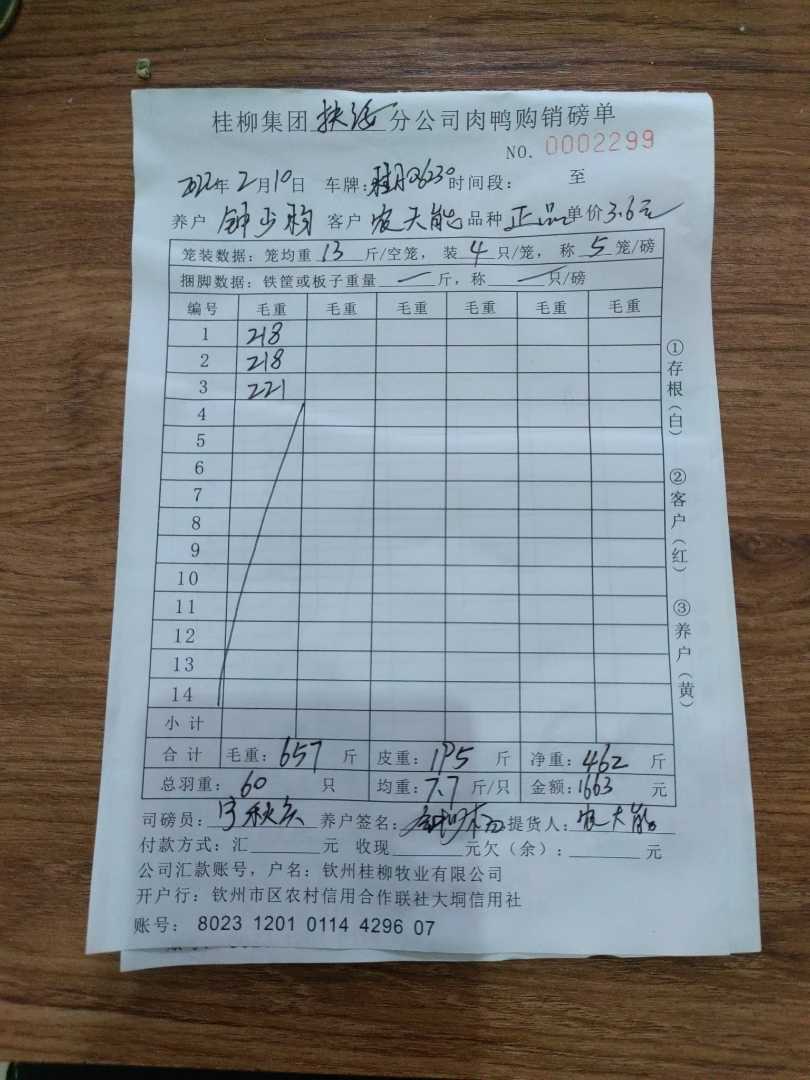 桂柳集团 扶绥 分公司肉鸭购销磅单
NO. 0002299
2022年2月10日 车牌: 时间段: 至
养户 钟少 客户 农天能 品种 正品 单价 3.6元
笼装数据:笼均重 13 斤/空笼,装 4 只/笼,称 5 笼/磅
捆脚数据:铁筐或板子重量 — 斤,称 — 只/磅
编号 毛重 毛重 毛重 毛重 毛重 毛重
1 218
2 218
3 221
4
5
6
7
8
9
10
11
12
13
14
小计
合计 毛重:657 斤 皮重:195 斤 净重:462 斤
总羽重:60 只 均重:7.7 斤/只 金额:1663 元
司磅员: 养户签名: 提货人:农天能
付款方式:汇 元 收现 元欠(余): 元
公司汇款账号,户名:钦州桂柳牧业有限公司
开户行:钦州市区农村信用合作联社大垌信用社
账号: 8023 1201 0114 4296 07
①存根(白) ②客户(红) ③养户(黄)